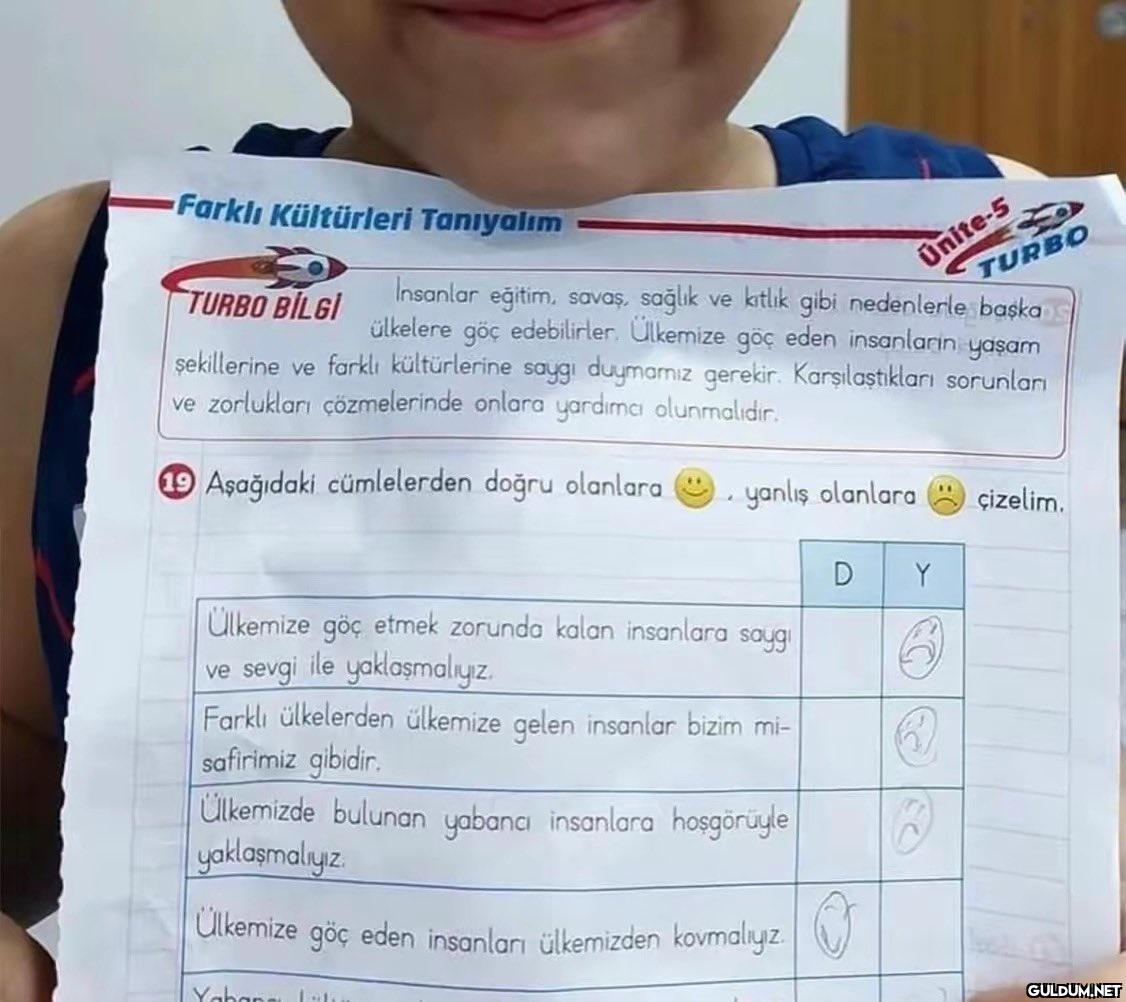 Farklı Kültürleri Tanıyalım
Ünite-5
TURBO
TURBO BİLGİ
İnsanlar eğitim, savaş, sağlık ve kıtlık gibi nedenlerle başka
ülkelere göç edebilirler. Ülkemize göç eden insanların yaşam
şekillerine ve farklı kültürlerine saygı duymamız gerekir. Karşılaştıkları sorunları
ve zorlukları çözmelerinde onlara yardımcı olunmalıdır.
19 Aşağıdaki cümlelerden doğru olanlara , yanlış olanlara çizelim.
D Y
Ülkemize göç etmek zorunda kalan insanlara saygı
ve sevgi ile yaklaşmalıyız.
Farklı ülkelerden ülkemize gelen insanlar bizim mi-
safirimiz gibidir.
Ülkemizde bulunan yabancı insanlara hoşgörüyle
yaklaşmalıyız.
Ülkemize göç eden insanları ülkemizden kovmalıyız.
GULDUM.NET